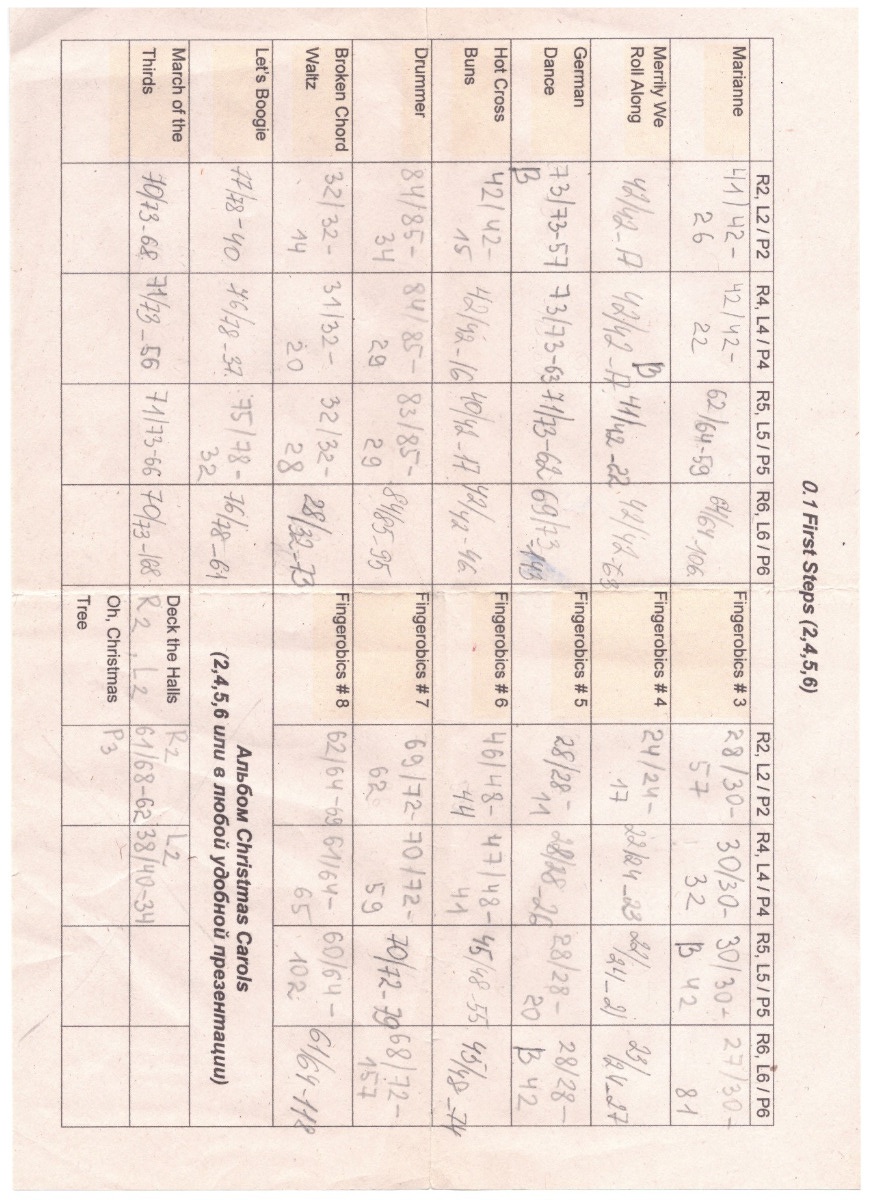 0.1 First Steps (2,4,5,6)
R2, L2 / P2 R4, L4 / P4 R5, L5 / P5 R6, L6 / P6 R2, L2 / P2 R4, L4 / P4 R5, L5 / P5 R6, L6 / P6
Marianne 41/42- 42/42- 62/64-59 64/64-106 Fingerobics # 3 28/30- 30/30- 30/30- 27/30-
26 22 57 32 В 42 81
Merrily We 42/42-17 42/42-17 В 41/42-22 42/42-63 Fingerobics # 4 24/24- 22/24-23 22/ 23/
Roll Along 17 24-21 24-27
German 73/73-57 73/73-63 71/73-62 69/73 Fingerobics # 5 28/28- 28/28-26 28/28- 28/28-
Dance В -143 11 20 В 42
Hot Cross 42/42- 42/42-16 40/42-17 42/ Fingerobics # 6 46/48- 47/48- 45/48-55 45/48-74
Buns 15 42-46 44 41
Drummer 84/85- 84/85- 83/85- 84/85-95 Fingerobics # 7 69/72- 70/72- 70/72-79 68/72-
34 29 29 62 59 157
Broken Chord 32/32- 31/32- 32/32- 28/32-73 Fingerobics # 8 62/64-69 61/64- 60/64- 61/64-118
Waltz 14 20 28 65 102
Let's Boogie 77/78-40 76/78-37 75/78- 76/78-61 Альбом Christmas Carols
32 (2,4,5,6 или в любой удобной презентации)
March of the Deck the Halls R2 L2
Thirds 70/73-68 71/73-56 71/73-66 70/73-168 R2, L2 61/68-62 38/40-34
Oh, Christmas P3
Tree